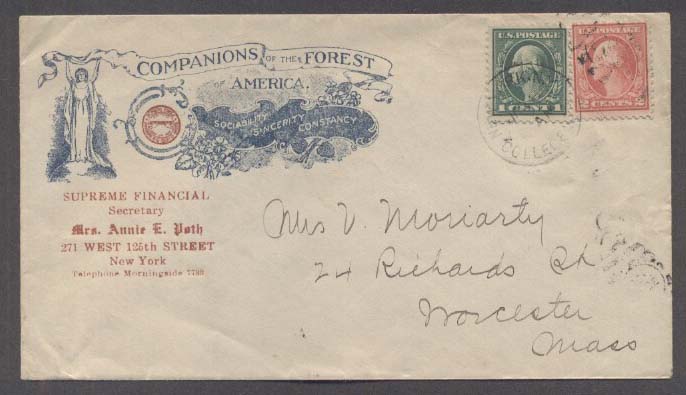 COMPANIONS OF THE FOREST
OF AMERICA.
SOCIABILITY
SINCERITY
CONSTANCY
SUPREME FINANCIAL
Secretary
Mrs. Annie E. Poth
271 WEST 125th STREET
New York
Telephone Morningside 7788
U.S. POSTAGE
1 CENT 1
U.S. POSTAGE
2 CENTS 2
COLLEGE
Mrs V. Moriarty
24 Richards St
Worcester
Mass